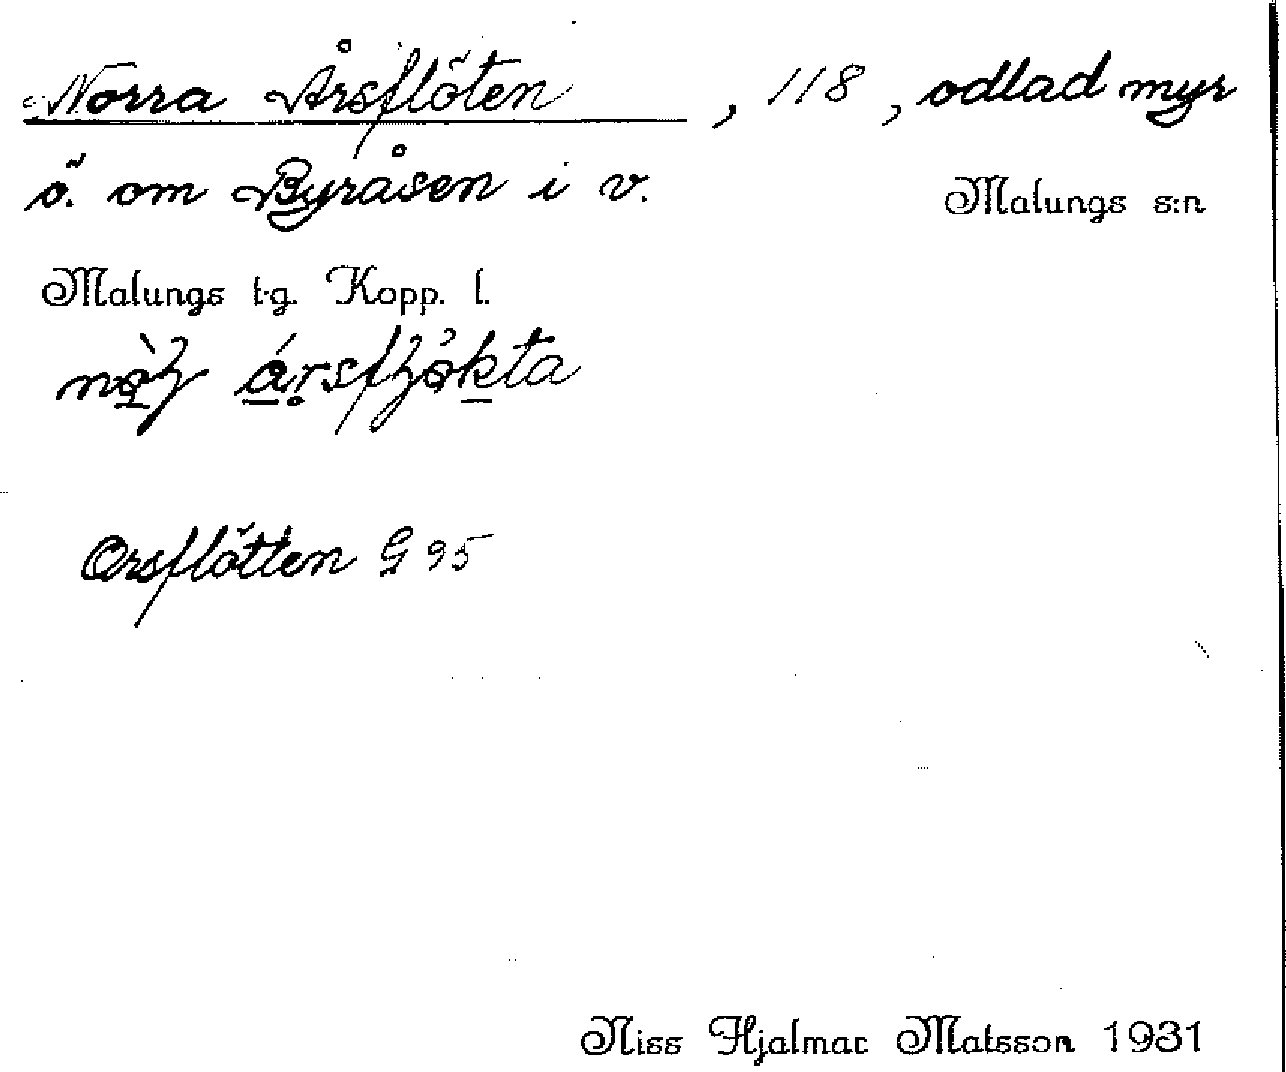 Norra Årsflöten, 118, odlad myr
ö. om Byråsen i v.
Malungs s:n
Malungs t.g. Kopp. l.
Orsflötten G 95
Niss Hjalmar Matsson 1931